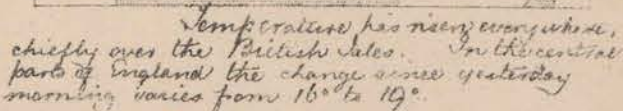 Temperature has risen everywhere,
chiefly over the British Isles. In the central
parts of England the change since yesterday
morning varies from 16° to 19°.